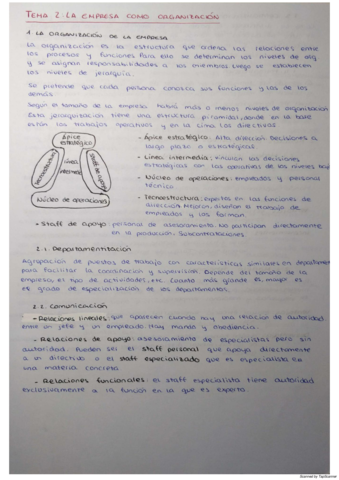 TEMA 2: LA EMPRESA COMO ORGANIZACIÓN
1. LA ORGANIZACIÓN DE LA EMPRESA
La organización es la estructura que ordena las relaciones entre
las personas y funciones. Para ello se determinan los niveles de
y se asignan responsabilidades a los miembros. Luego se establecen
los niveles de jerarquía.
Se pretende que cada persona conozca sus funciones y las de los
demás.
Según el tamaño de la empresa habrá más o menos niveles de organización
Esta jerarquización tiene una estructura piramidal, donde en la base
están los trabajos operativos y en la cima los directivos
Ápice
estratégico
Línea
intermedia
Tecnoestructura
Staff de apoyo
Núcleo de operaciones
- Ápice estratégico: Alta dirección. Decisiones a
largo plazo o estratégicas.
- Línea intermedia: vinculan las decisiones
estratégicas con las operativas de los niveles
- Núcleo de operaciones: empleados y personal
técnico.
- Tecnoestructura: expertos en las funciones de
dirección. Mejoran, diseñan el trabajo de
empleados y los forman.
- Staff de apoyo: personal de asesoramiento. No participan directamente
en la producción. Subcontrataciones.
2.1. Departamentización
Agrupación de puestos de trabajo con características similares en departamentos
para facilitar la coordinación y supervisión. Depende del tamaño de la
empresa, el tipo de actividades, etc. Cuanto más grande es, mayor es
el grado de especialización de los departamentos.
2.2. Comunicación
- Relaciones lineales: que aparecen cuando hay una relación de autoridad
entre un jefe y un empleado. Hay mando y obediencia.
- Relaciones de apoyo: asesoramiento de especialistas pero sin
autoridad. Pueden ser el staff personal que apoya directamente
a un directivo o el staff especializado que es especialista en
una materia concreta.
- Relaciones funcionales: el staff especialista tiene autoridad
exclusivamente a la función en la que es experto.
Scanned by TapScanner